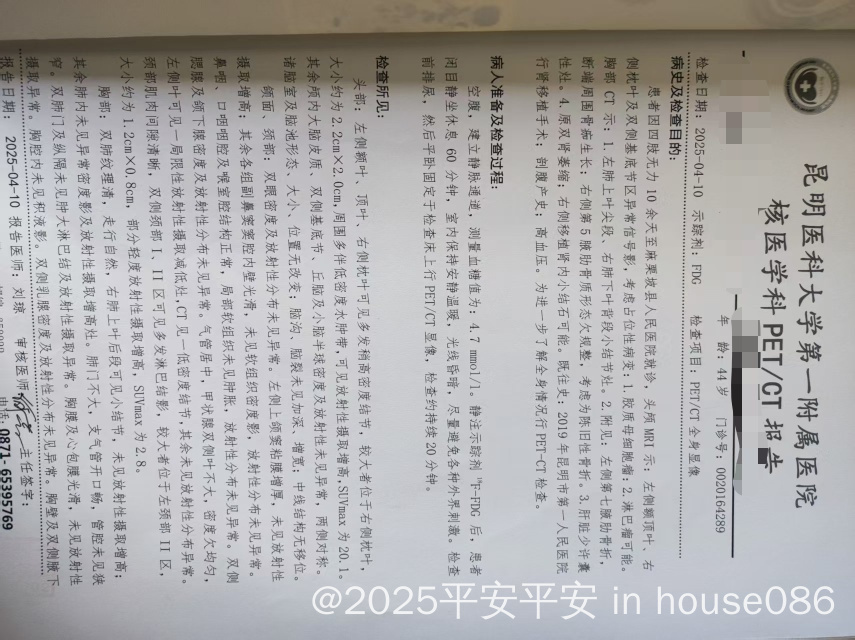 昆明医科大学第一附属医院
核医学科 PET/CT 报告
年 龄：44 岁 门诊号：0020164289
检查日期：2025-04-10 示踪剂：FDG 检查项目：PET/CT 全身显像
病史及检查目的：
患者因四肢无力 10 余天至麻栗坡县人民医院就诊，头颅 MRI 示：左侧额顶叶、右
侧枕叶及双侧基底节区异常信号影，考虑占位性病变：1.胶质母细胞瘤；2.淋巴瘤可能。
胸部 CT 示：1.左肺上叶尖段、右肺下叶背段小结节灶。2.附见：左侧第七腋肋骨折，
断端周围骨痂生长；右侧第 5 腋肋骨质形态欠规整，考虑为陈旧性骨折。3.肝脏少许囊
性灶。4.原双肾萎缩；右侧移植肾内小结石可能。既往史：2019 年昆明市第一人民医院
行肾移植手术；剖腹产史；高血压。为进一步了解全身情况行 PET-CT 检查。
病人准备及检查过程：
空腹，建立静脉通道，测量血糖值为：4.7 mmol/l。静注示踪剂 ¹⁸F-FDG 后，患者
闭目静坐休息 60 分钟，室内保持安静温暖，光线昏暗，尽量避免各种外界刺激。检查
前排尿，然后平卧固定于检查床上行 PET/CT 显像，检查约持续 20 分钟。
检查所见：
头部：左侧额叶、顶叶、右侧枕叶可见多发稍高密度结节，较大者位于右侧枕叶，
大小约为 2.2cm×2.0cm,周围多伴低密度水肿带,可见放射性摄取增高,SUVmax 为 20.1。
其余颅内大脑皮质、双侧基底节、丘脑及小脑半球密度及放射性未见异常，两侧对称。
诸脑室及脑池形态、大小、位置无改变；脑沟、脑裂未见加深、增宽；中线结构无移位。
颌面、颈部：双眼密度及放射性分布未见异常。左侧上颌窦粘膜增厚，未见放射性
摄取增高；其余各组副鼻窦窦腔内壁光滑，未见软组织密度影，放射性分布未见异常。
鼻咽、口咽咽腔及喉室腔结构正常，局部软组织未见肿胀，放射性分布未见异常。双侧
腮腺及颌下腺密度及放射性分布未见异常。气管居中，甲状腺双侧叶不大，密度欠均匀，
左侧叶可见一局限性放射性摄取减低灶,CT 见一低密度结节,其余未见放射性分布异常。
颈部肌肉间隙清晰，双侧颈部 I、II 区可见多发淋巴结影，较大者位于左颈部 II 区，
大小约为 1.2cm×0.8cm，部分轻度放射性摄取增高，SUVmax 为 2.8。
胸部：双肺纹理清，走行自然，右肺上叶后段可见小结节，未见放射性摄取增高；
其余肺内未见异常密度影及放射性摄取增高灶。肺门不大，支气管开口畅，管腔未见狭
窄。双肺门及纵隔未见肿大淋巴结及放射性摄取异常。胸膜及心包膜光滑，未见放射性
摄取异常。胸腔内未见积液影。双侧乳腺密度及放射性分布未见异常。胸壁及双侧腋下
报告日期：2025-04-10 报告医师：刘琼 审核医师： 主任签字：
电话：0871-65395769
@2025平安平安 in house086